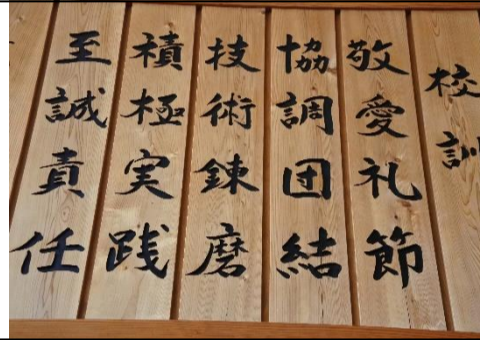 校訓
敬愛礼節
協調団結
技術錬磨
積極実践
至誠責任